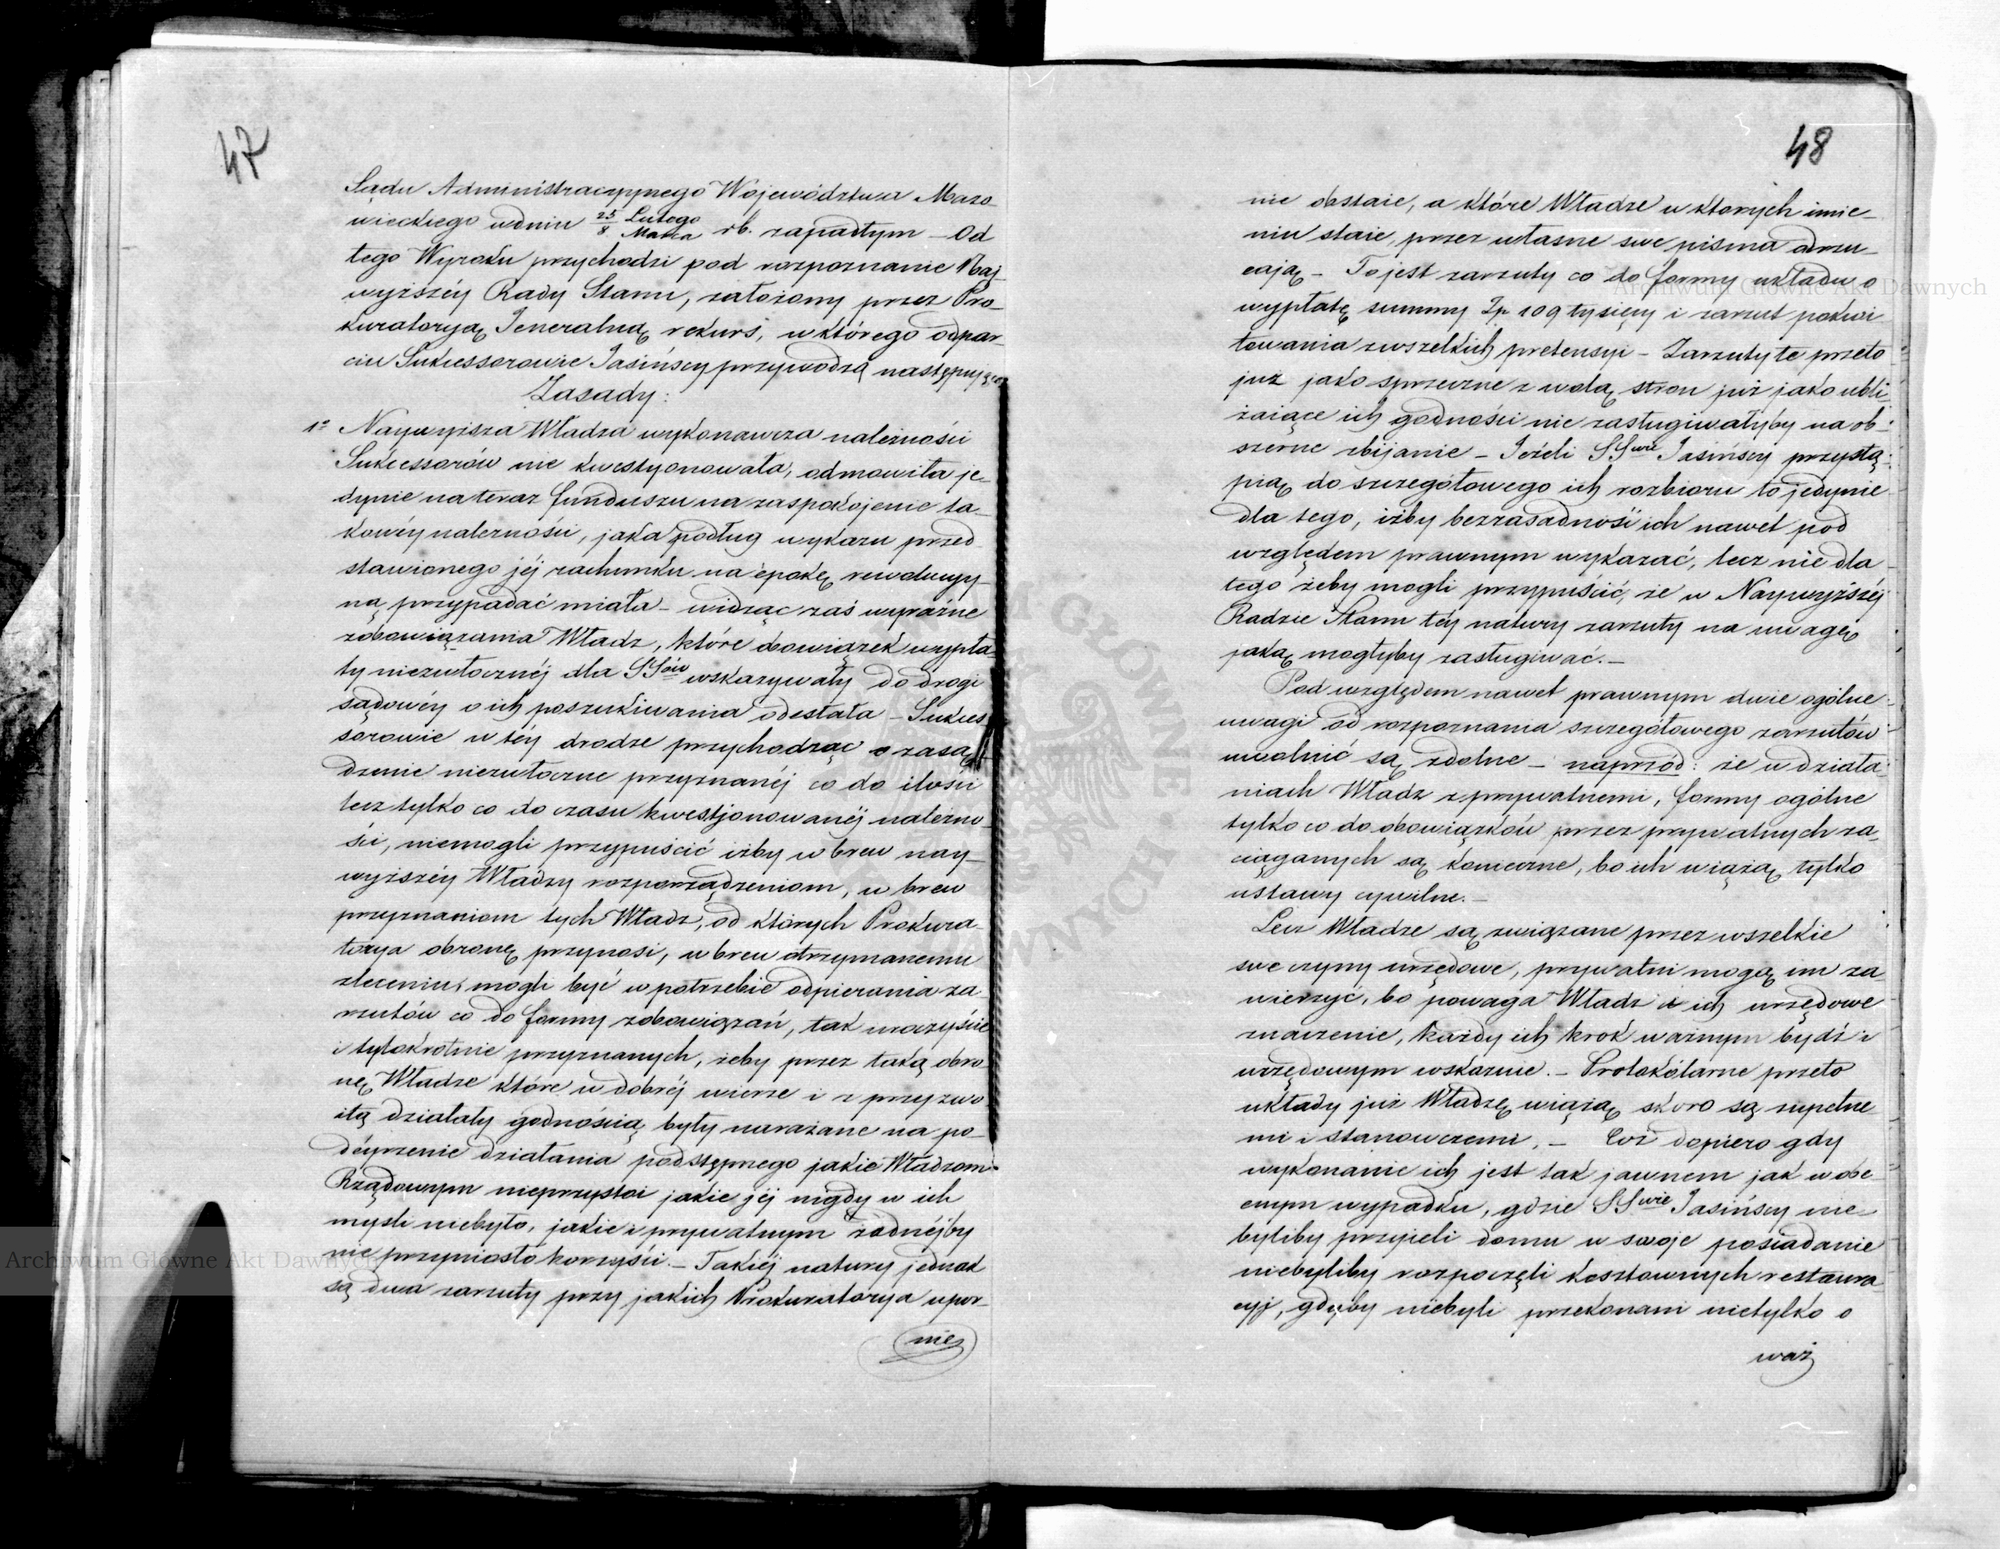 47
Sądu Administracyjnego Województwa Mazo-
wieckiego w dniu 25/8 Lutego/Marca rb. zapadłym – Od
tego Wyroku przychodzi pod rozpoznanie Naj-
wyższéy Rady Stanu, założony przez Pro-
kuratoryą Jeneralną rekurs, w którego odpar-
ciu Sukcessorowie Jasińscy przywodzą następujące
Zasady:
1º Naywyższa Władza wykonawcza należności
Sukcessorów nie kwestyonowała, odmówiła je-
dynie na teraz funduszu na zaspokojenie ta-
kowéy należności, jaka podług wykazu przed-
stawionego jéj rachunku na epokę rewolucyj-
ną przypadać miała – widząc zaś wyraźne
zobowiązania Władz, które obowiązek wypła-
ty niezwłocznéj dla SSów wskazywały do drogi
sądowéy o ich poszukiwania odesłała – Sukces-
sorowie w téy drodze przychodząc o zasą-
dzenie niezwłoczne przyznanéj co do ilości
lecz tylko co do czasu kwestjonowanéj należno-
ści, niemogli przypuścić iżby w brew nay-
wyższéy Władzy rozporządzeniom, w brew
przyznaniom tych Władz, od których Prokura-
torya obronę przynosi, w brew otrzymanemu
zleceniu, mogli być w potrzebie odpierania za-
rzutów co do formy zobowiązań, tak uroczyście
i tylokrotnie przyznanych, żeby przez taką obro-
nę Władze które w dobréj wierze i z przyzwo-
itą działały godnością były narażane na po-
déyrzenie działania podstępnego jakie Władzom
Rządowym nieprzystoi jakie jéj nigdy w ich
myśli niebyło, jakie i prywatnym żadnéjby
nie przyniosło korzyści. – Takiéj natury jednak
są dwa zarzuty przy jakich Prokuratorya upor-
nie
48
nie obstaie, a które Władze w których imie-
niu staie, przez własne swe pisma odrzu-
cają – To jest zarzuty co do formy układu o
wypłatę summy Zp. 109 tysięcy i zarzut pokwi-
towania z wszelkich pretensyi – Zarzuty te przeto
już jako sprzeczne z wolą stron już jako ubli-
żaiące ich godności nie zasługiwałyby na ob-
szerne zbijanie – Jeżeli SSwie Jasińscy przystą-
pią do szczegółowego ich rozbioru to jedynie
dla tego, iżby bezzasadność ich nawet pod
względem prawnym wykazać, lecz nie dla
tego żeby mogli przypuścić, że w Naywyższéj
Radzie Stanu téj natury zarzuty na uwagę
jaką mogłyby zasługiwać. –
Pod względem nawet prawnym dwie ogólne
uwagi od rozpoznania szczegółowego zarzutów
uwolnić są zdolne – naprzód: że w działa-
niach Władz z prywatnemi, formy ogólne
tylko co do obowiązków przez prywatnych za-
ciąganych są konieczne, bo ich wiążą tylko
ustawy cywilne. –
Lecz Władze są związane przez wszelkie
swe czyny urzędowe, prywatni mogą im za-
wierzyć, bo powaga Władz i ich urzędowe
znaczenie, każdy ich krok ważnym bydź i
urzędowym wskazuie. – Protokólarne przeto
układy już Władzę wiążą skoro są zupełne-
mi i stanowczemi, – Cóż dopiero gdy
wykonanie ich jest tak jawnem jak w obe-
cnym wypadku, gdzie SSwie Jasińscy nie-
byliby przyieli domu w swoje posiadanie
niebyliby rozpoczęli kosztownych restaura-
cyj, gdyby niebyli przekonani nietylko o
waż
Archiwum Główne Akt Dawnych
Archiwum Główne Akt Dawnych